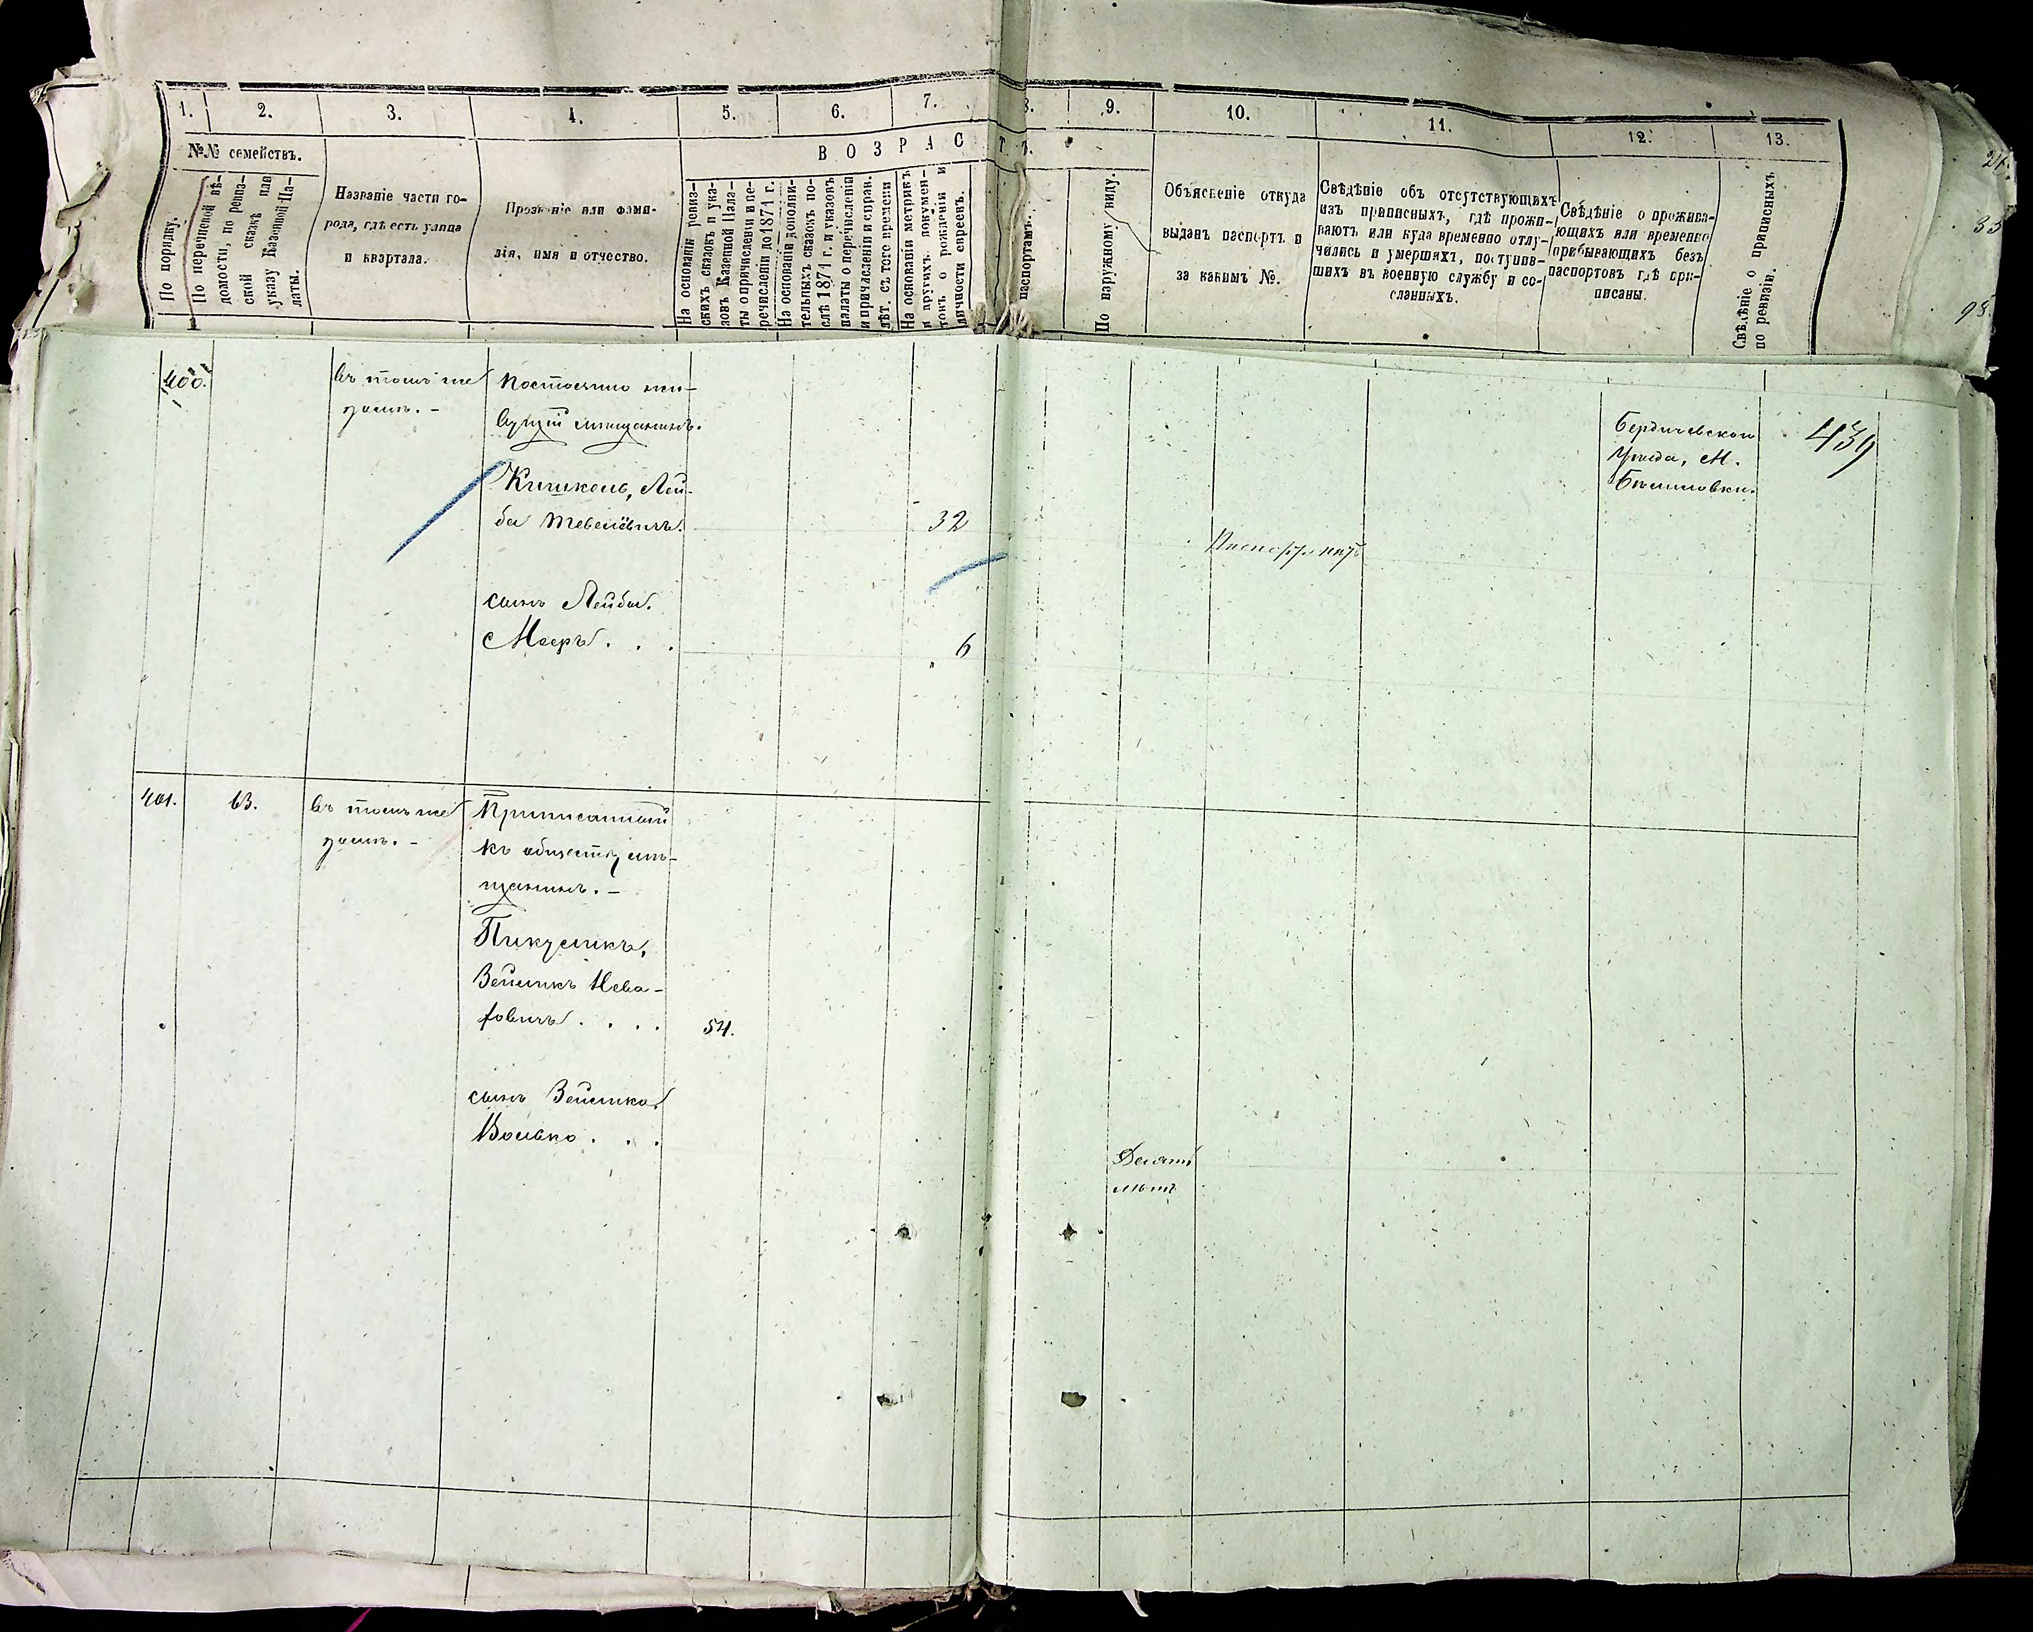 1. 2. 3. 4. 5. 6. 7. 8. 9. 10. 11. 12. 13.
№№ семействъ.
ВОЗРАСТЪ.
По порядку.
По перечневой вѣ-
домости, по ревиз-
ской сказкѣ или
указу Казенной Па-
латы.
Названіе части го-
рода, гдѣ есть улица
и квартала.
Прозваніе или фами-
лія, имя и отчество.
На основаніи ревиз-
скихъ сказокъ и ука-
зовъ Казенной Пала-
ты о причисленіи и пе-
речисленіи до 1871 г.
На основаніи дополни-
тельныхъ сказокъ по-
слѣ 1871 г. и указовъ
палаты о перечисленіи
и причисленіи и справ.
лѣт. съ того времени
На основаніи метрикъ
и другихъ докумен-
товъ о рожденіи и
личности евреевъ.
паспортамъ.
По наружному виду.
Объясненіе откуда
выданъ паспортъ и
за какимъ №.
Свѣдѣніе объ отсутствующихъ
изъ приписныхъ, гдѣ прожи-
ваютъ или куда временно отлу-
чились и умершихъ, поступив-
шихъ въ военную службу и со-
сланныхъ.
Свѣдѣніе о прожива-
ющихъ или временно
прибывающихъ безъ
паспортовъ гдѣ при-
писаны.
Свѣдѣніе о приписныхъ
по ревизіи.
35
98.
400.
въ томъ же
домѣ. -
Постоянно жи-
вущій мѣщанинъ.
Кишколь, Лей-
ба Тевелевичъ.
32
сынъ Лейбы.
Мееръ . . .
" 6
Бердичевского
Уѣзда, М.
Бѣлиловки.
439
401.
63.
въ томъ же
домѣ. -
Приписанный
къ обществу мѣ-
щанинъ. -
Пикусикъ,
Зейликъ Нева-
ховичъ . . . .
54.
сынъ Зейлика.
Волько . . .
Десять
лѣтъ